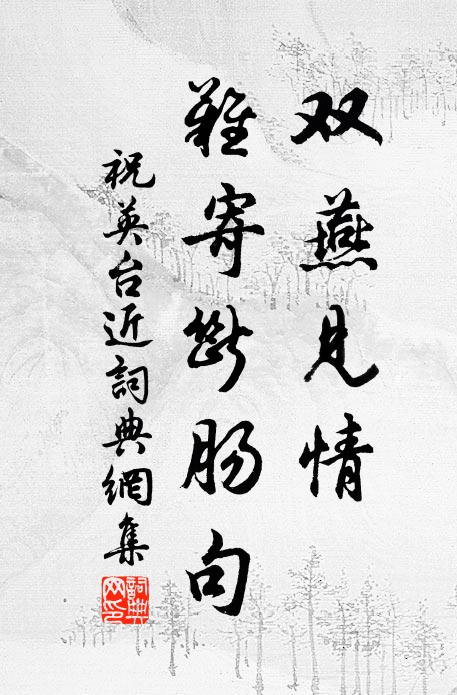 双燕見情
難寄斷肠句
祝英台近詞典網集
詞典
网印